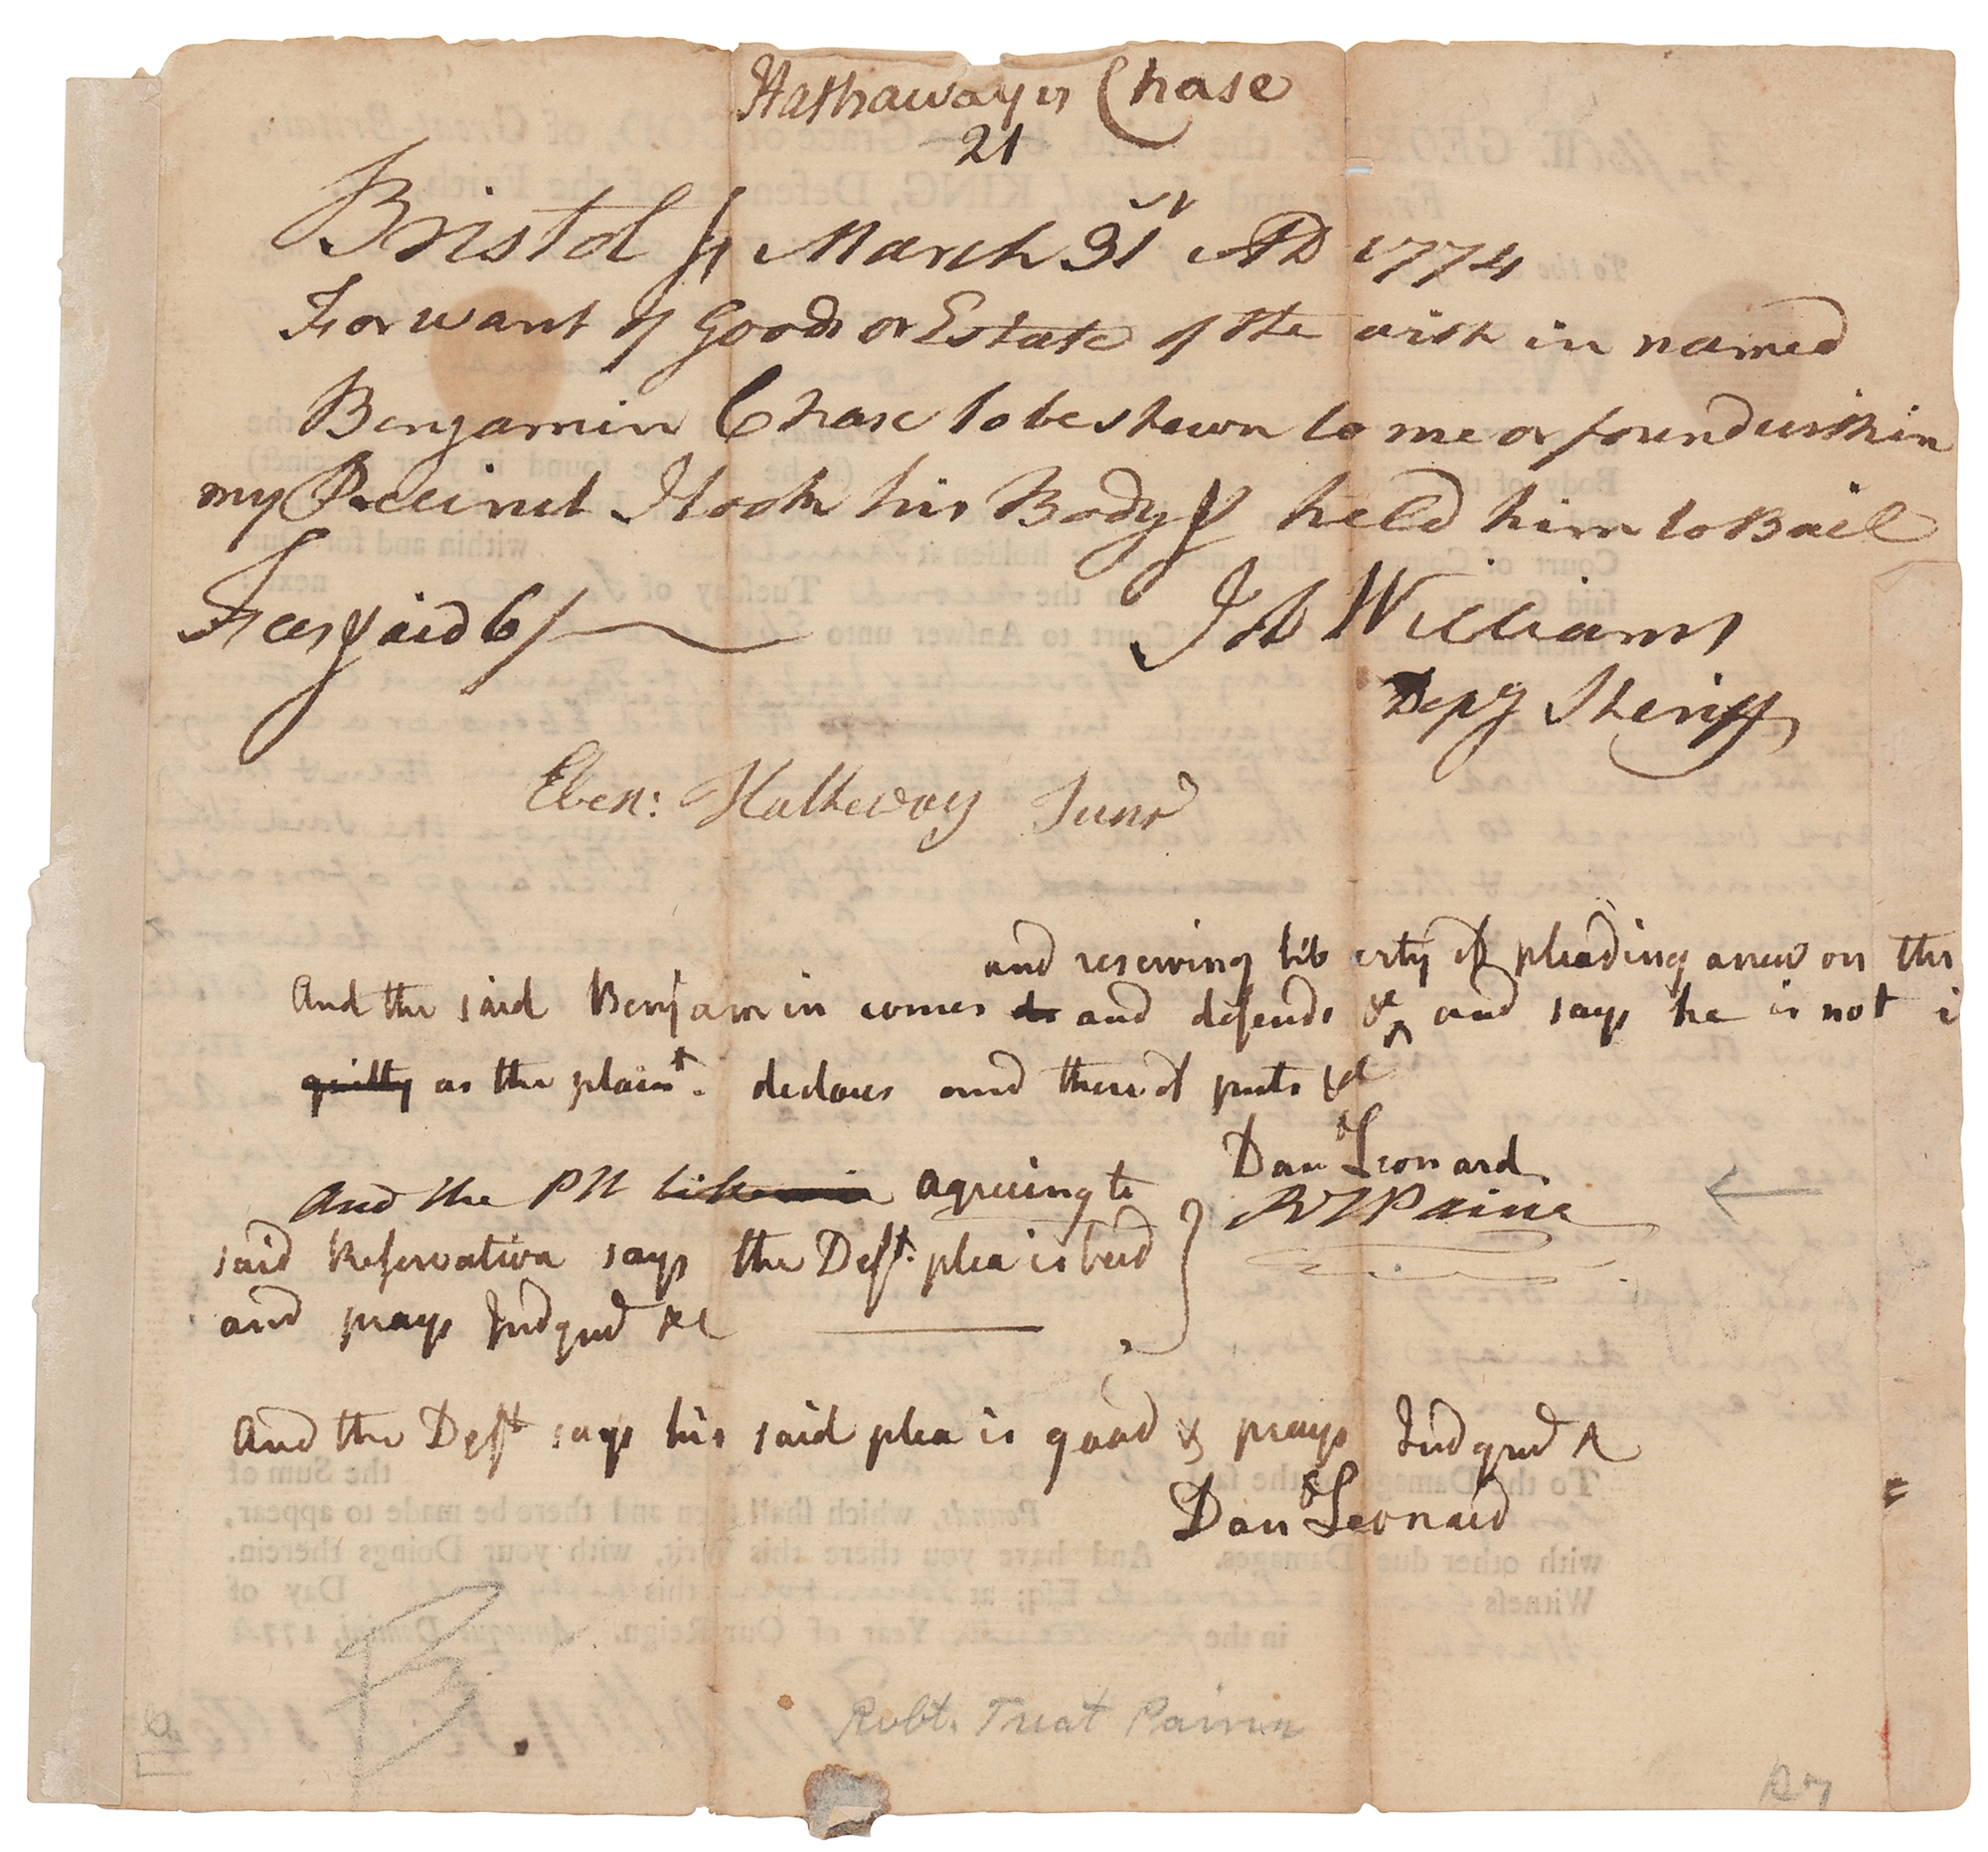 Hathaway vs Chase
21
Bristol ss March 31st AD 1774
For want of Goods or Estate of the with in named
Benjamin Chase to be shewn to me or found within
my Precinct I took his Body & held him to Bail
Fees paid 6/
Job Williams
Depy Sheriff
Eben: Hatheway Junr
and reserving liberty of pleading anew on the
And the said Benjamin comes and defends &c and says he is not
guilty as the plaint. declares and thereof puts &c
Danl Leonard
And the Plt likewise agreeing to
RTPaine
said Reservation says the Deft. plea is bad
and prays Judgmt &c
And the Deft says his said plea is good & prays Judgmt &c
Danl Leonard
Robt. Treat Paine